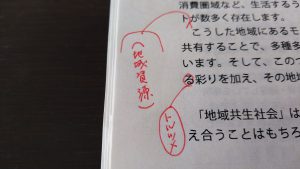 消費圏域など、生活する
トが数多く存在します。
こうした地域にあるモ
共有することで、多種多
います。そして、このつ
る彩りを加え、その地
「地域共生社会」は
え合うことはもちろ
（地域資源）
トルツメ